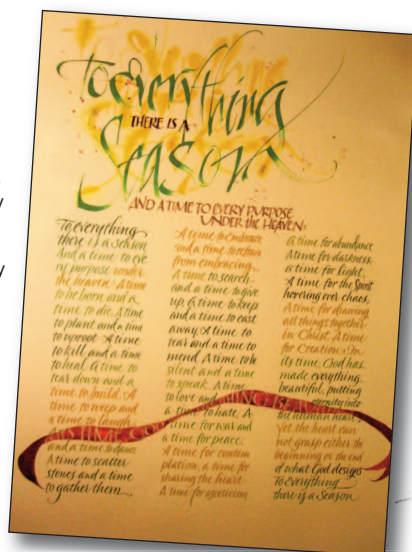 To Everything
THERE IS A
Season
AND A TIME TO EVERY PURPOSE
UNDER THE HEAVEN:
To everything
there is a season
And a time to eve
ry purpose under
the heaven: A time
to be born and a
time to die. A time
to plant and a time
to uproot. A time
to kill, and a time
to heal. A time to
tear down and a
time to build. A
time to weep and
a time to laugh.
and a time to dance
A time to scatter
stones and a time
to gather them
A time to embrace
and a time to refrain
from embracing.
A time to search
and a time to give
up. A time to keep
and a time to cast
away. A time to
tear and a time to
mend. A time to be
silent and a time
to speak. A time
to love and
a time to hate. A
time for war and
a time for peace.
A time for contem
plation, a time for
sharing the heart
A time for asceticism
A time for abundance
A time for darkness,
a time for light.
A time for the Spirit
hovering over chaos,
A time for drawing
all things together
in Christ. A time
for Creation. In
its time, God has
made everything
beautiful, putting
eternity into
the human heart,
yet the heart can
not grasp either the
beginning or the end
of what God designs
To Everything
there is a Season
ITS TIME GOD
BEAU